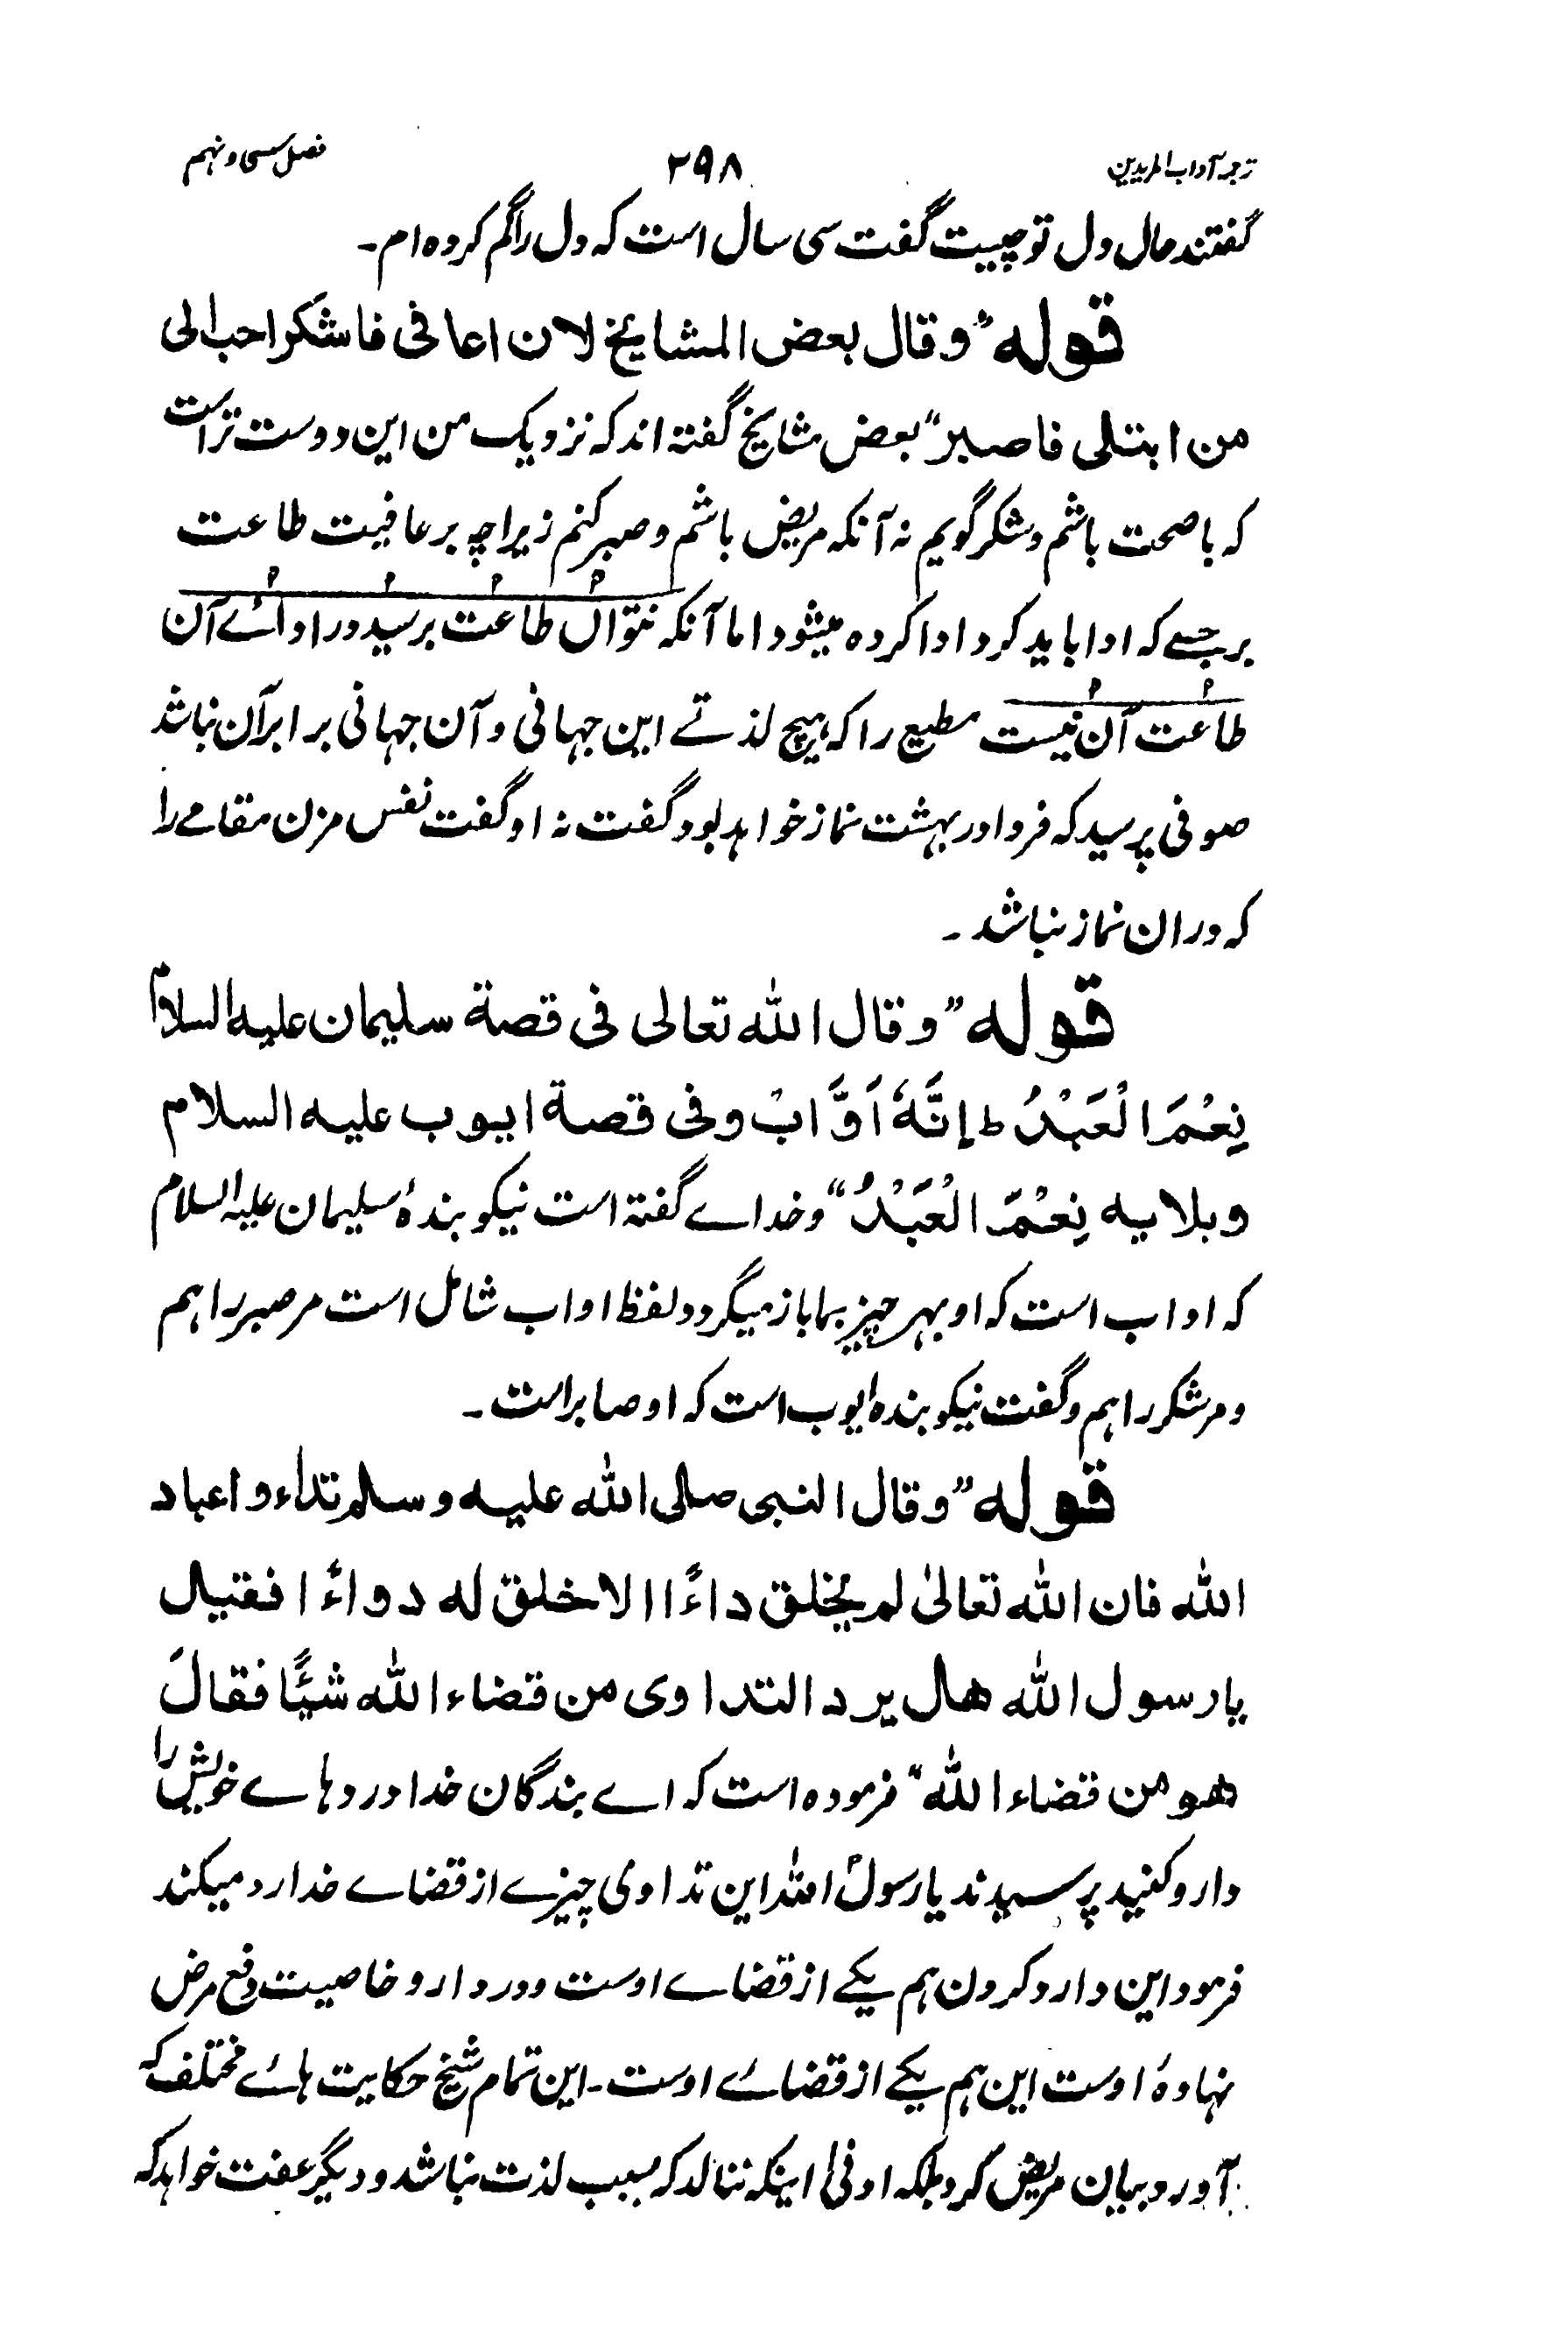 ترجمہ آداب المریدین ۲۹۸ فصل سی و نہم
گفتند حال دل تو چیست گفت سی سال است کہ دل را گم کردہ ام۔
قولہ "وقال بعض المشایخ لان اعافی فاشکر احب الی
من ابتلی فاصبر" بعض مشایخ گفتہ اند کہ نزدیک من این دوست تراست
کہ با صحت باشم و شکر گویم نہ آنکہ مریض باشم و صبر کنم زیراچہ بر عافیت طاعت
بر جسے کہ ادا باید کرد ادا کردہ میشود اما آنکہ نتوان طاعت برسید و را ادائے آن
طاعت آن نیست مطیع را کہ ہیچ لذتے این جہانی و آن جہانی برابر آن نباشد
صوفی پرسید کہ فردا در بہشت نماز خواہد بود گفت نہ او گفت نفس مزن مقامے را
کہ دران نماز نباشد۔
قولہ "وقال اللہ تعالی فی قصة سلیمان علیہ السلام
نِعْمَ الْعَبْدُ ط اِنَّهٗ اَوَّابٌ وفی قصة ایوب علیہ السلام
وبلایه نِعْمَ الْعَبْدُ" و خداے گفتہ است نیکو بندۂ سلیمان علیہ السلام
کہ اواب است کہ او بہر چیز بما باز میگردد و لفظ اواب شامل است مر صبر را ہم
و مر شکر را ہم و گفت نیکو بندہ ایوب است کہ او صابر است۔
قولہ "وقال النبی صلی اللہ علیہ وسلم تداءوا عباد
اللہ فان اللہ تعالیٰ لم یخلق داءً ا الا خلق له دواءً ا فقیل
یا رسول اللہ هل یرد التداوی من قضاء اللہ شیئًا فقالَ
هو من قضاء اللہ" فرمودہ است کہ اے بندگان خدا دردہاے خویش را
دارو کنید پرسیدند یا رسول اللہ این تداوی چیزے از قضاے خدا رد میکند
فرمود این دارو کردن ہم یکے از قضاے اوست و در دارو خاصیت دفع مرض
نہادۂ اوست این ہم یکے از قضائے اوست۔ این تمام شیخ حکایت ہائے مختلف کہ
آورد و بیان مریض کرد بلکہ اوفیٰ اینکہ ننالد کہ بسبب لذت نباشد و دیگر عفت خواہد کہ